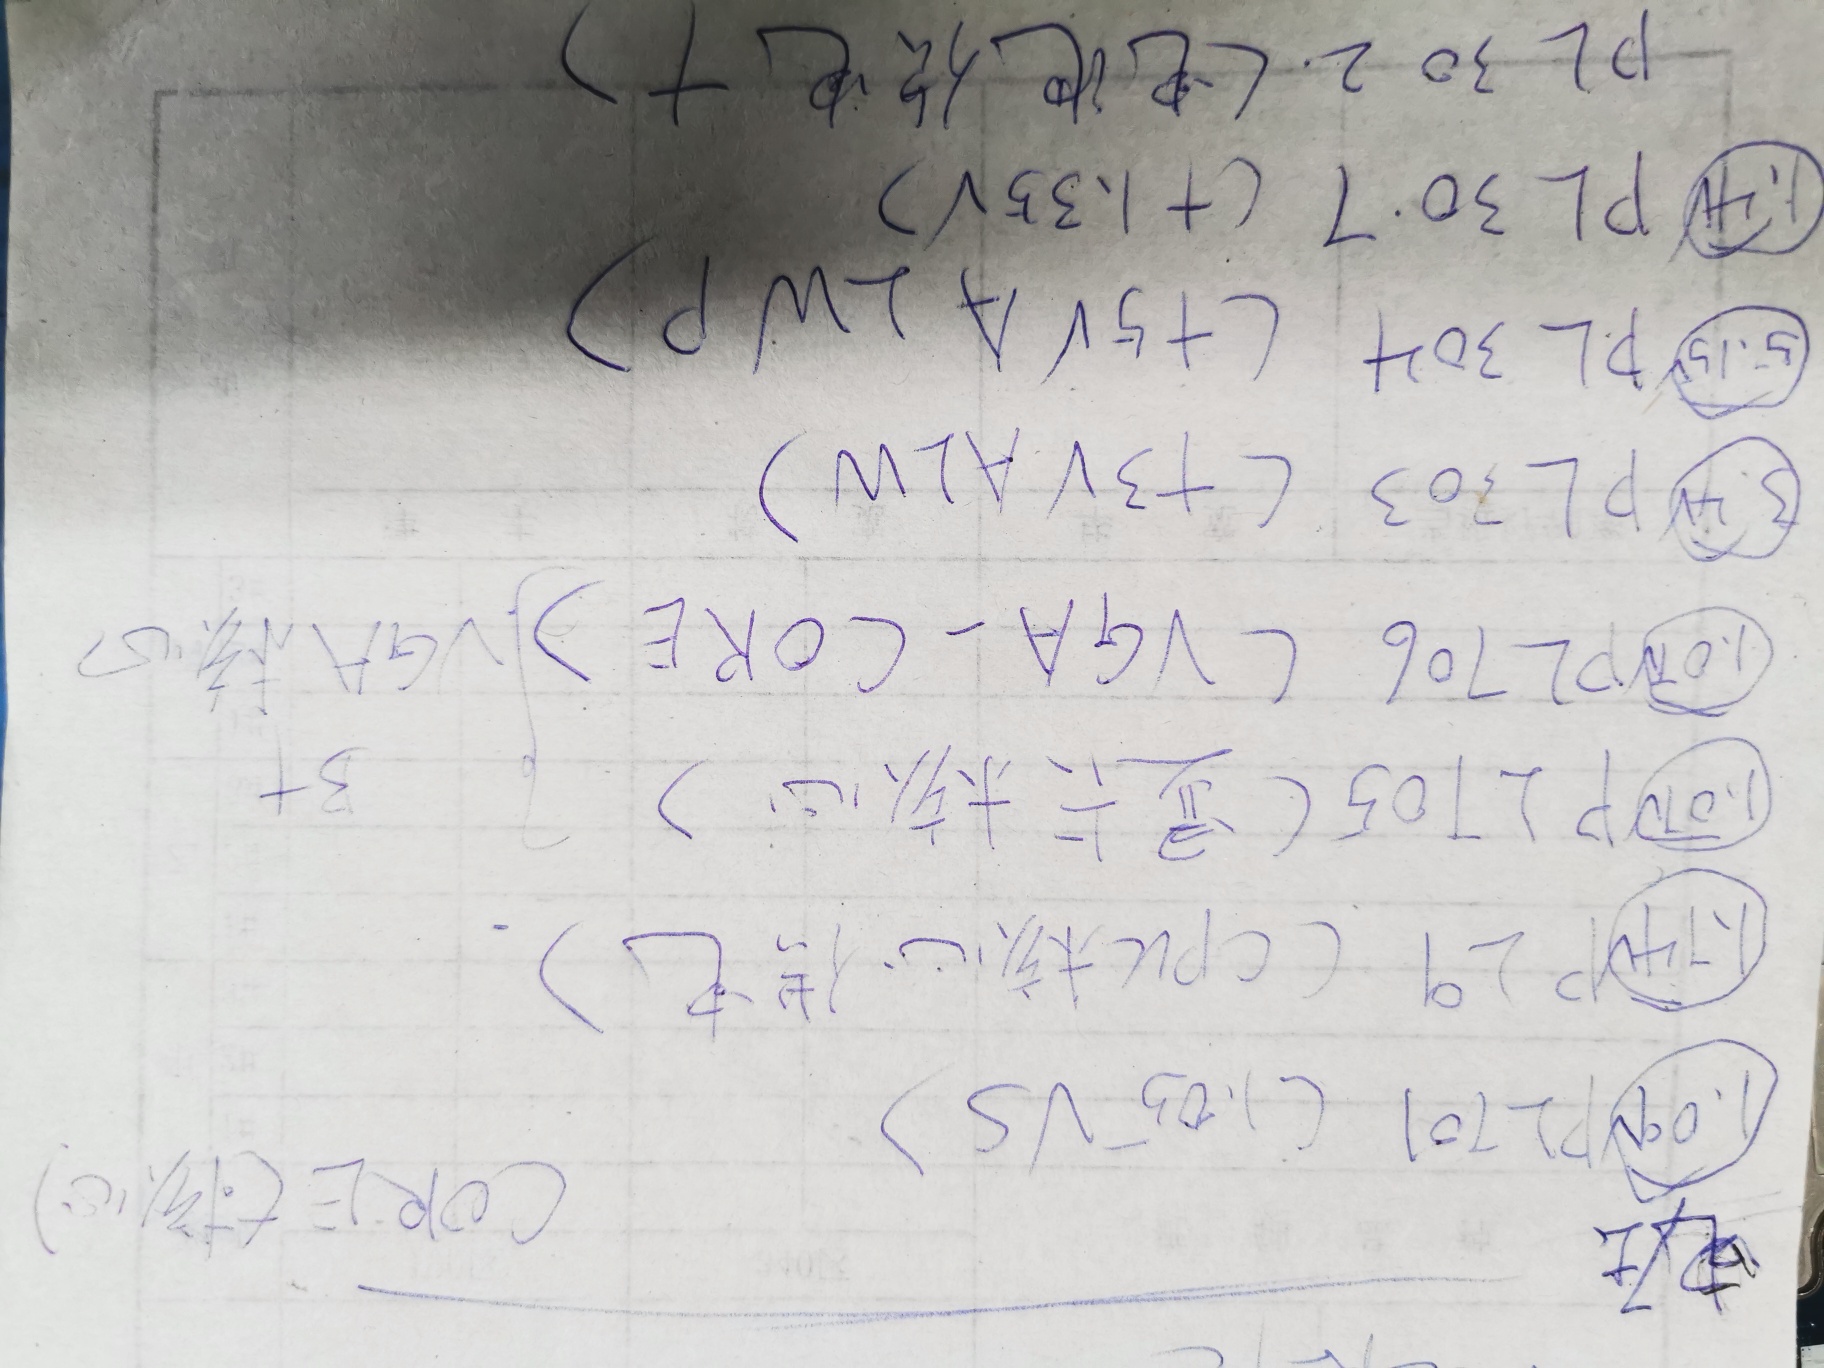 电压
CORE (核心)
1.09V PL701 (1.05VS)
1.74V PL9 (CPU核心供电)
1.07V PL705 (显卡核心) 3+
1.07V PL706 (VGA-CORE) VGA核心
3.4V PL303 (+3VALW)
5.15V PL304 (+5VALWP)
1.4V PL307 (+1.35V)
PL302 (电池供电+)